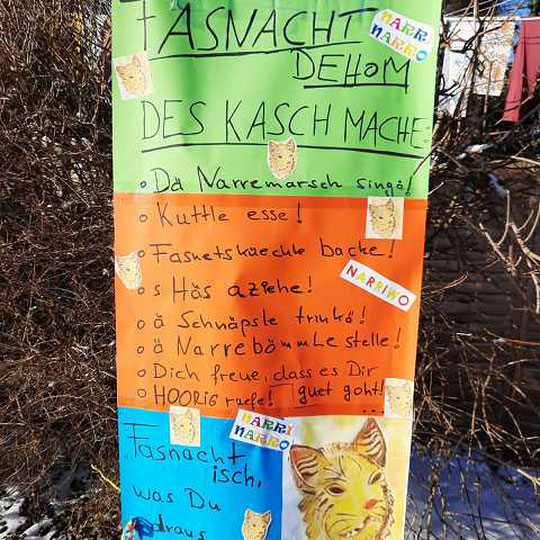 FASNACHT
NARRI
NARRO
DEHOM
DES KASCH MACHE:
o Dä Narremarsch singä!
o Kuttle esse!
o Fasnetsküechle backe!
o s Häs aziehe!
NARRIWO
o ä Schnäpsle trinkä!
o ä Narrebömmle stelle!
o Dich freue, dass es Dir
guet goht!
o HOORIG ruefe!
...
NARRI
NARRO
Fasnacht
isch,
was Du
draus